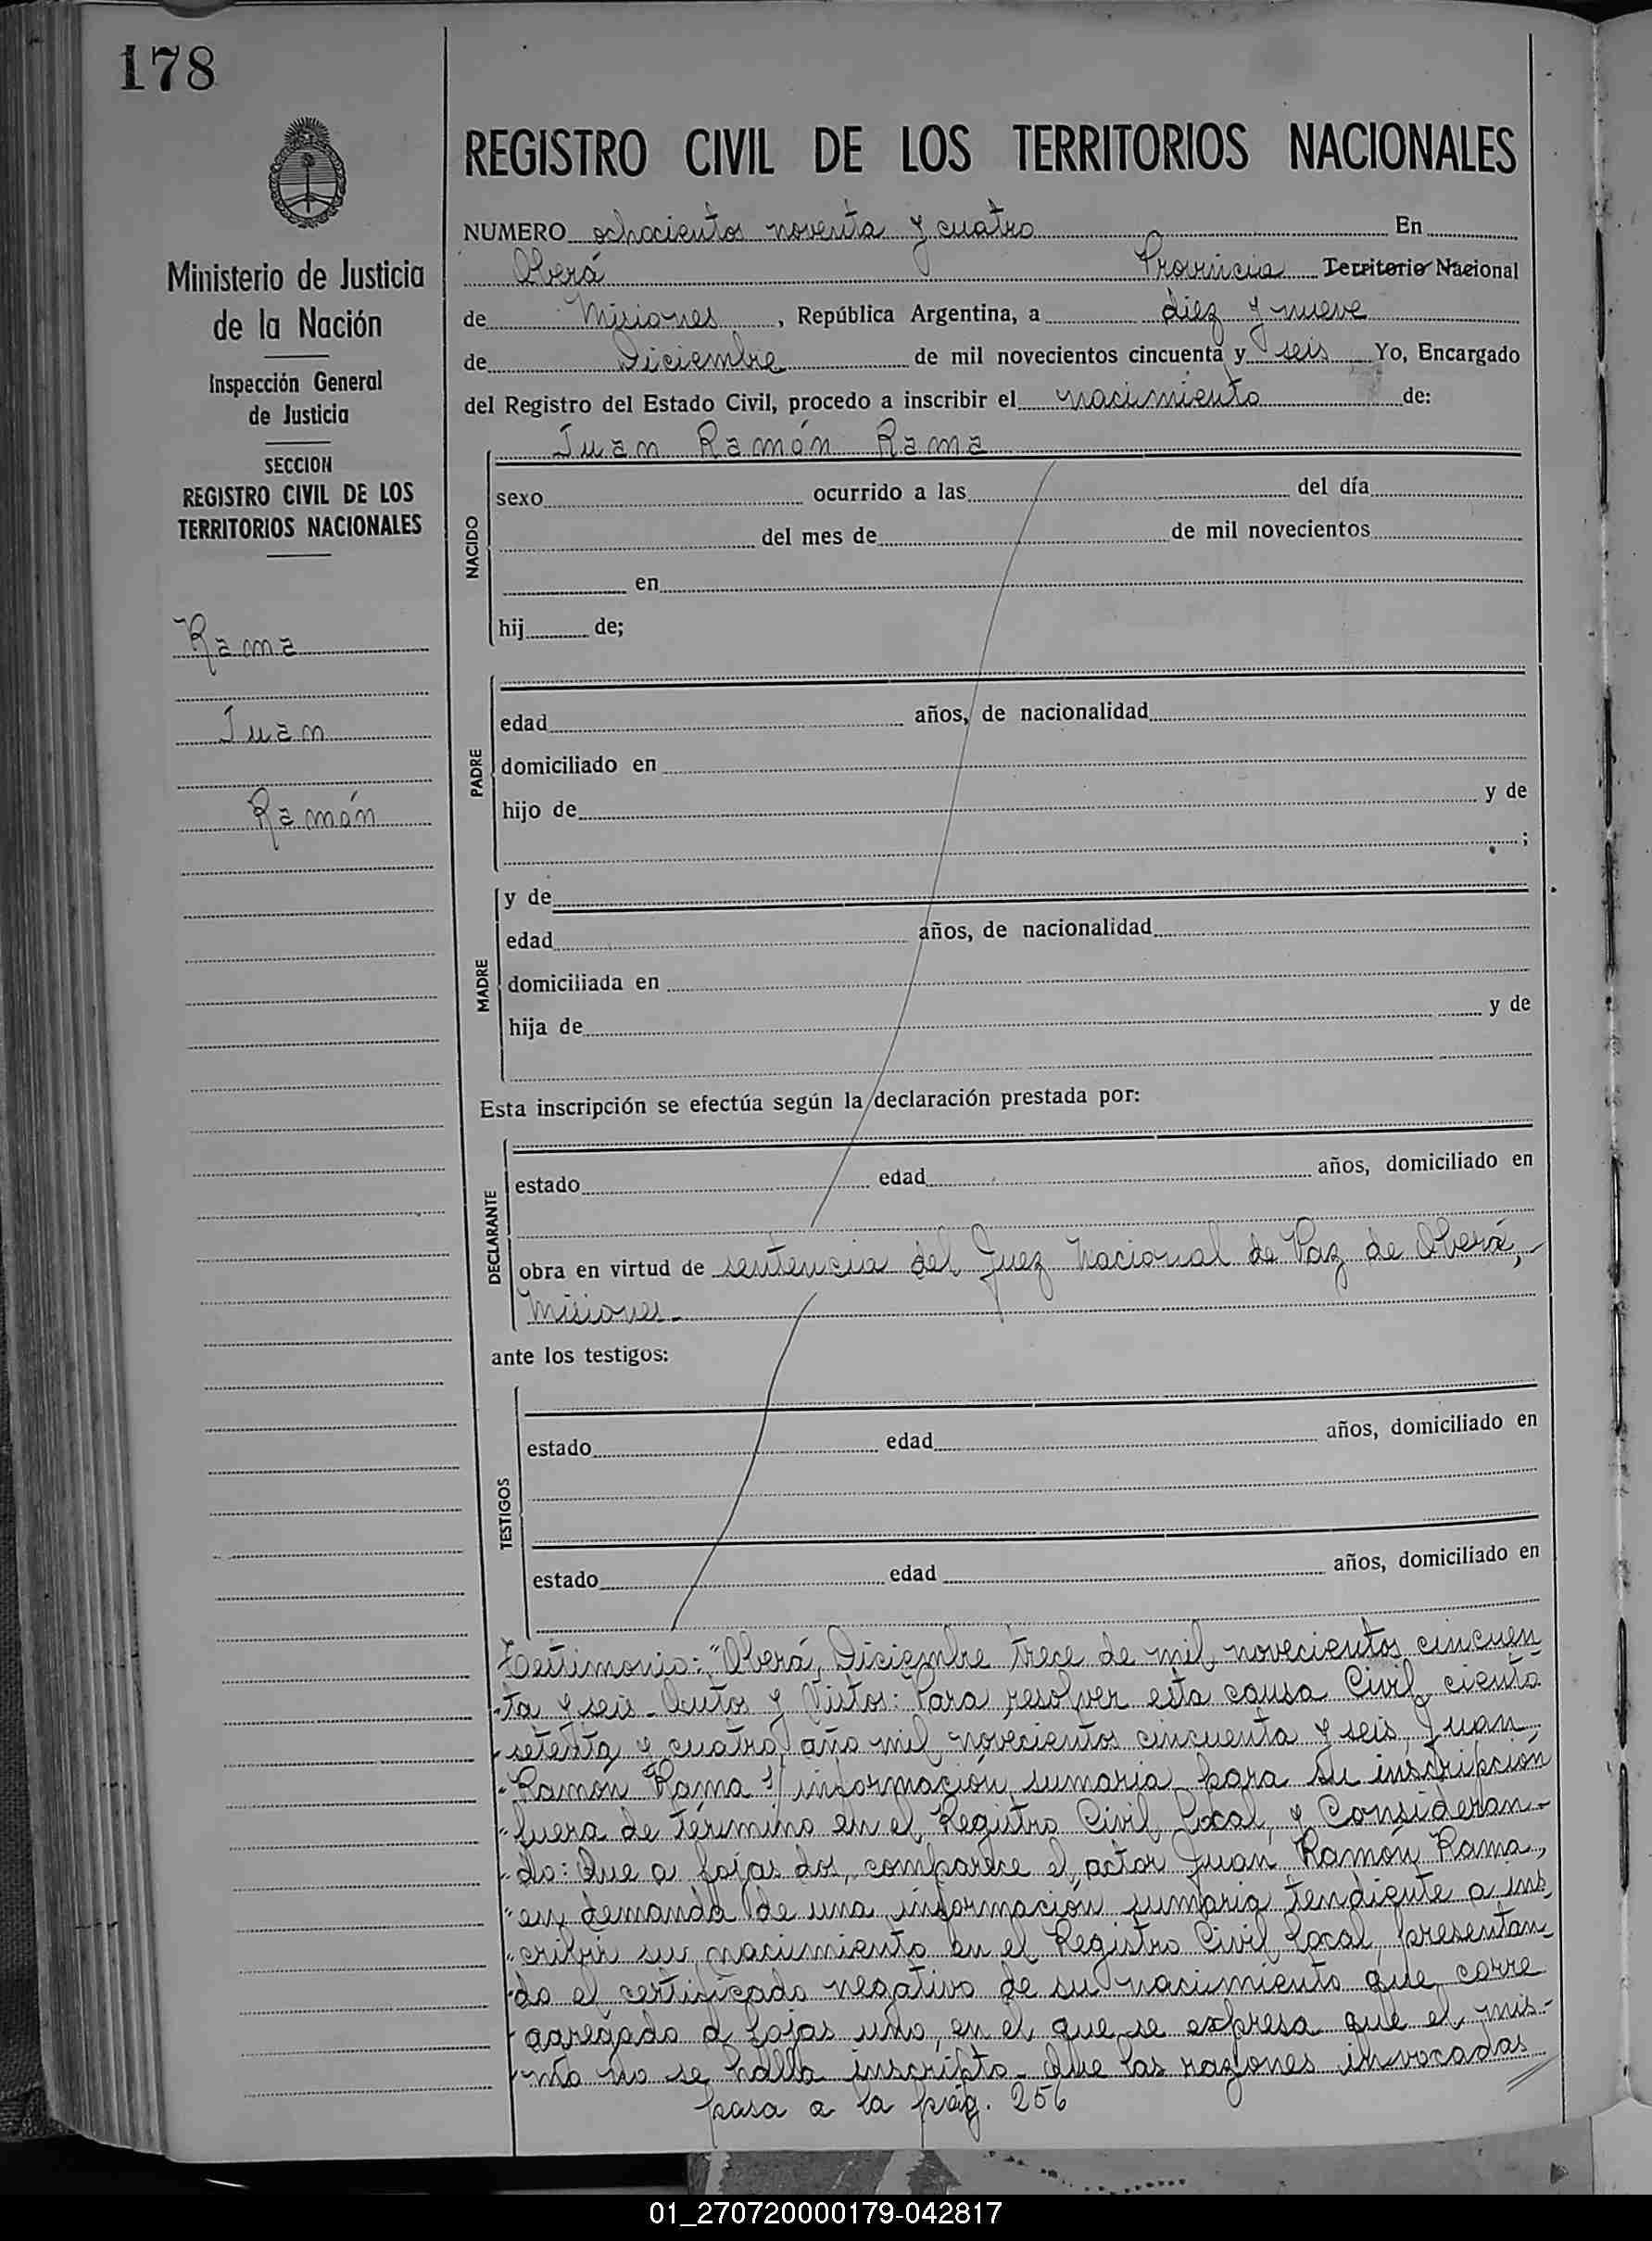 178
REGISTRO CIVIL DE LOS TERRITORIOS NACIONALES
Ministerio de Justicia
de la Nación
Inspección General
de Justicia
SECCION
REGISTRO CIVIL DE LOS
TERRITORIOS NACIONALES
Rama
Juan
Ramón
NUMERO ochocientos noventa y cuatro En
Oberá Provincia Territorio Nacional
de Misiones, República Argentina, a diez y nueve
de Diciembre de mil novecientos cincuenta y seis Yo, Encargado
del Registro del Estado Civil, procedo a inscribir el nacimiento de:
Juan Ramón Rama
NACIDO
sexo ocurrido a las del día
del mes de de mil novecientos
en
hij de;
PADRE
edad años, de nacionalidad
domiciliado en
hijo de y de
;
MADRE
y de
edad años, de nacionalidad
domiciliada en
hija de y de
Esta inscripción se efectúa según la declaración prestada por:
DECLARANTE
estado edad años, domiciliado en
obra en virtud de sentencia del Juez Nacional de Paz de Oberá,
Misiones.-
ante los testigos:
TESTIGOS
estado edad años, domiciliado en
estado edad años, domiciliado en
Testimonio: "Oberá, Diciembre trece de mil novecientos cincuen
"ta y seis.- Autos y Vistos: Para resolver esta causa Civil ciento
"setenta y cuatro, año mil novecientos cincuenta y seis, Juan
"Ramón Rama s/ información sumaria para su inscripción
"fuera de término en el Registro Civil Local, y Consideran-
"do: Que a fojas dos, comparece el actor Juan Ramón Rama,
"en demanda de una información sumaria tendiente a ins
"cribir su nacimiento en el Registro Civil Local, presentan
"do el certificado negativo de su nacimiento que corre
"agregado a fojas uno, en el que se expresa que el mis-
"mo no se halla inscripto.- Que las razones invocadas
pasa a la pág. 256
01_270720000179-042817